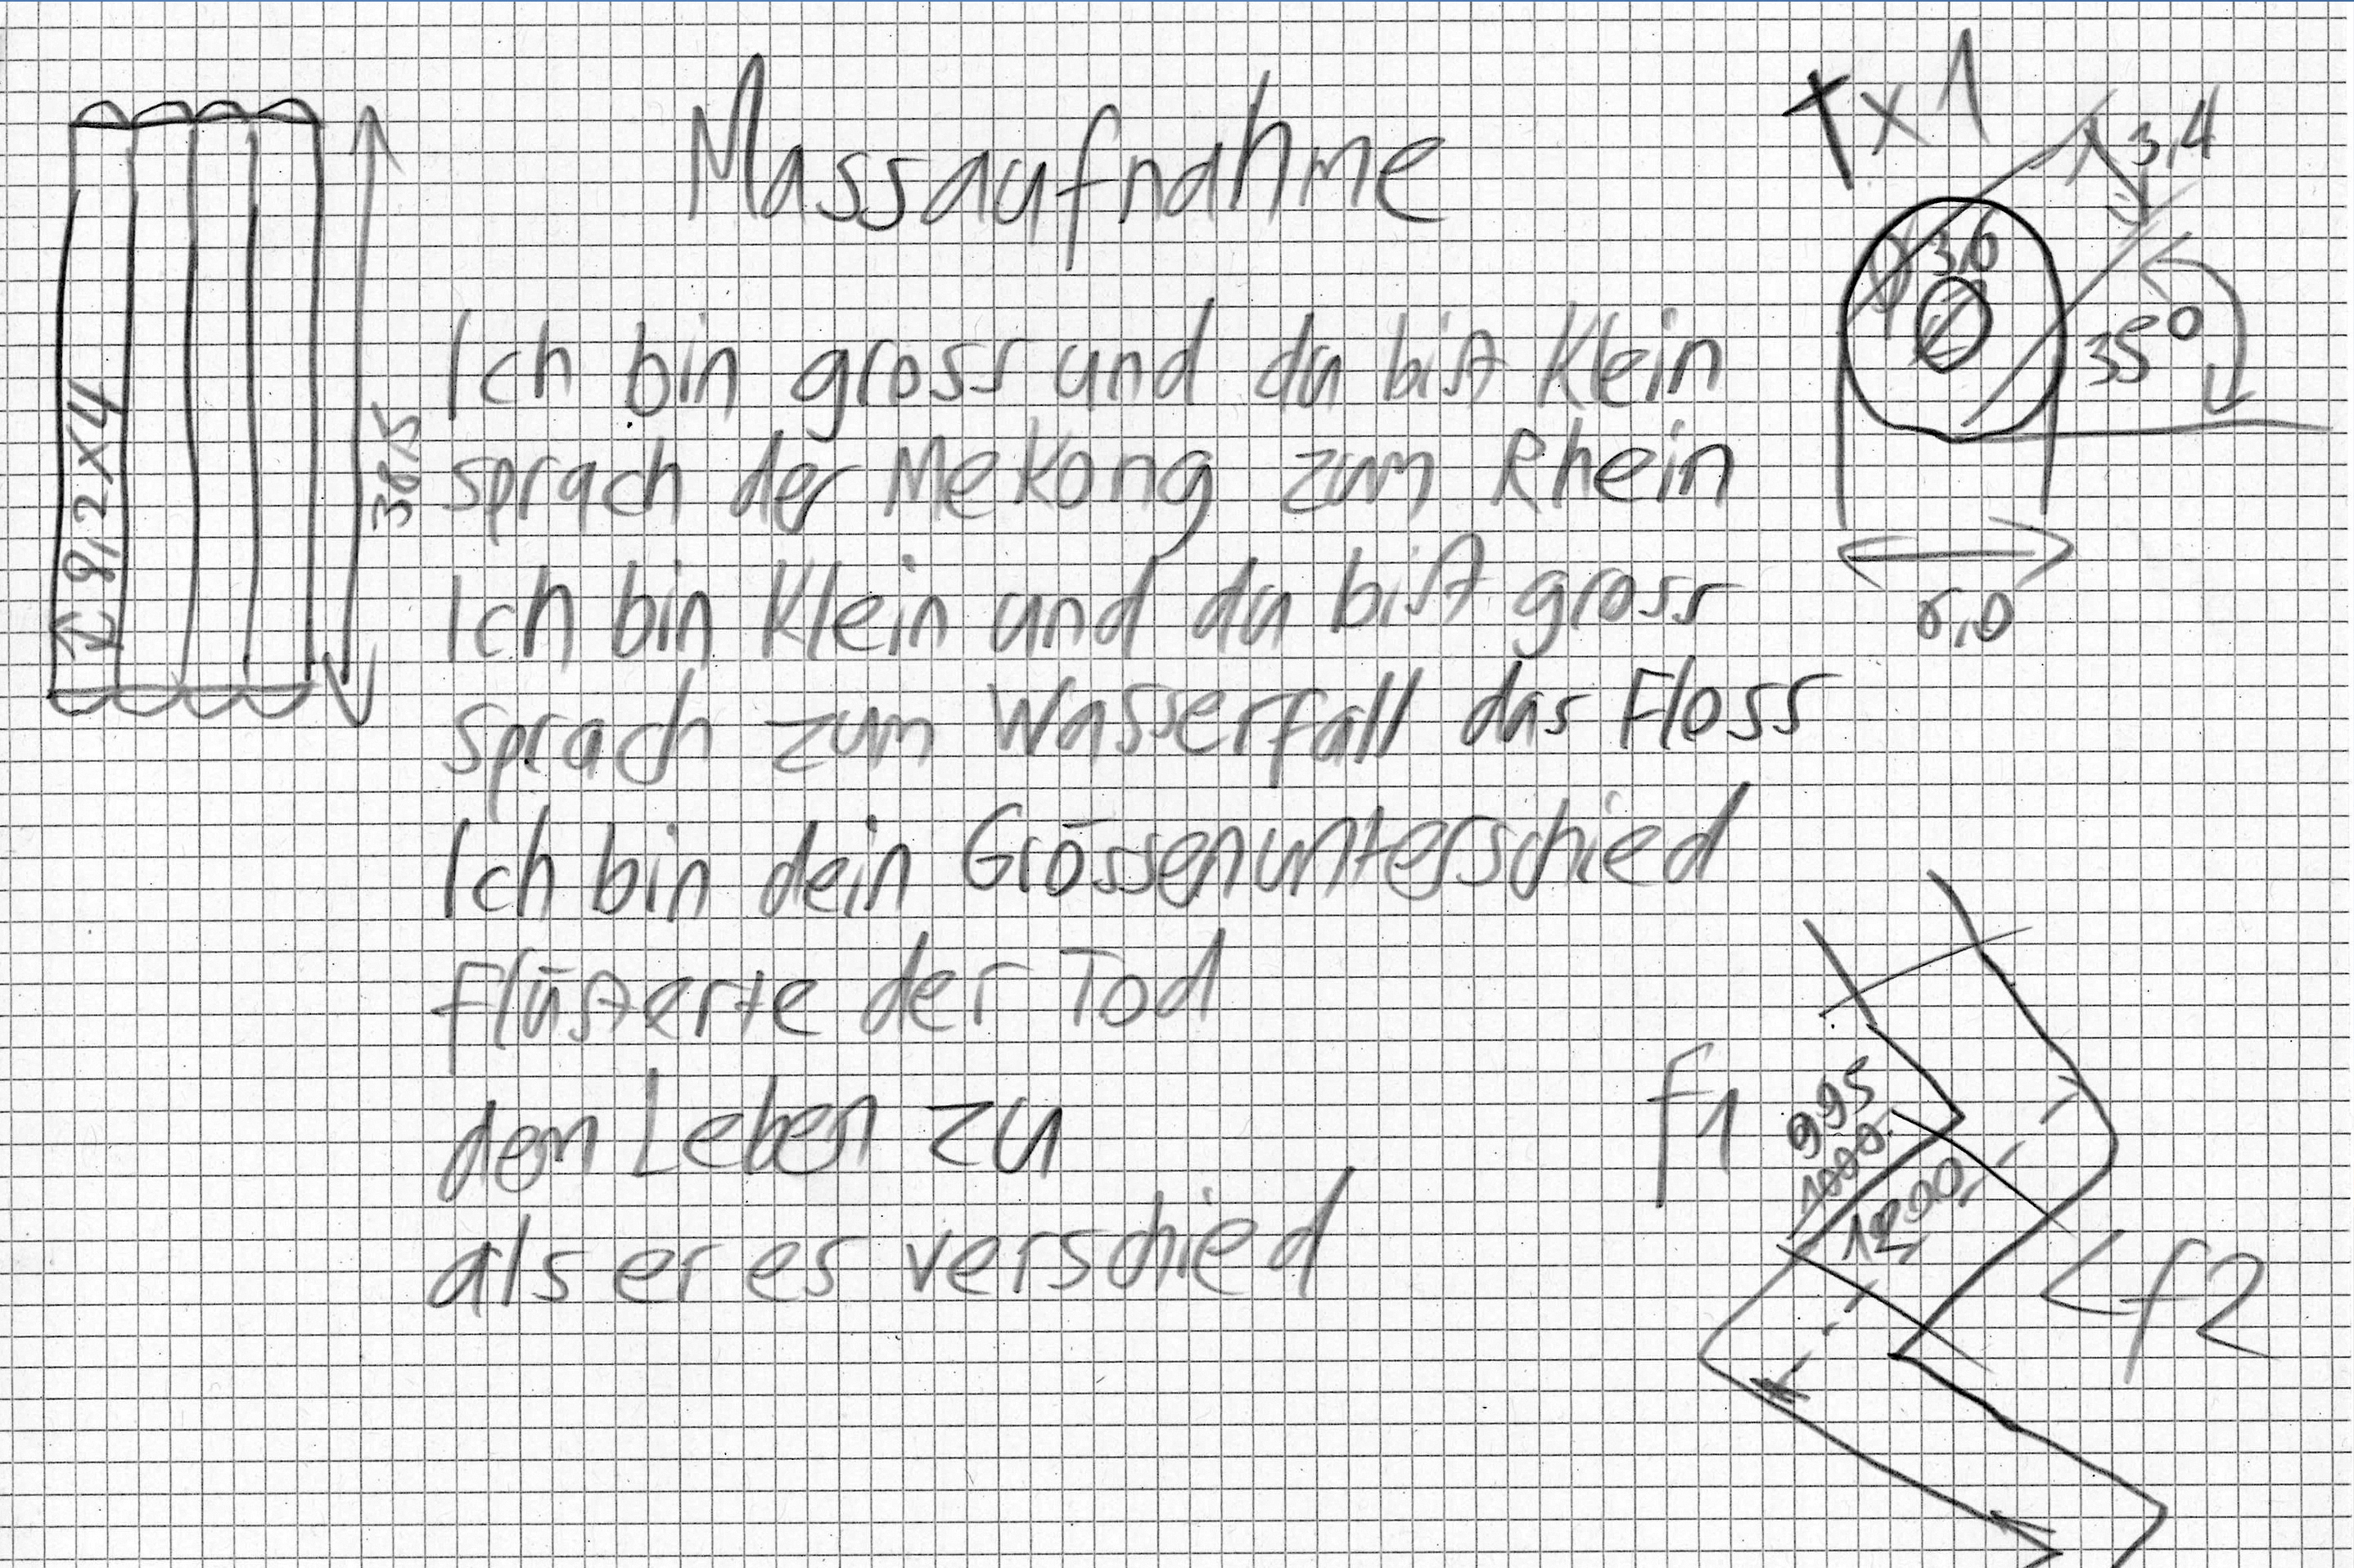 Massaufnahme
Ich bin gross und du bist Klein
sprach der Mekong zum Rhein
Ich bin Klein und du bist gross
sprach zum Wasserfall das Floss
Ich bin dein Grössenunterschied
flüsterte der Tod
dem Leben zu
als er es verschied
x 1
3,4
3,6
35°
6,0
9,2 x 4
f1
995
1000
1200
f2